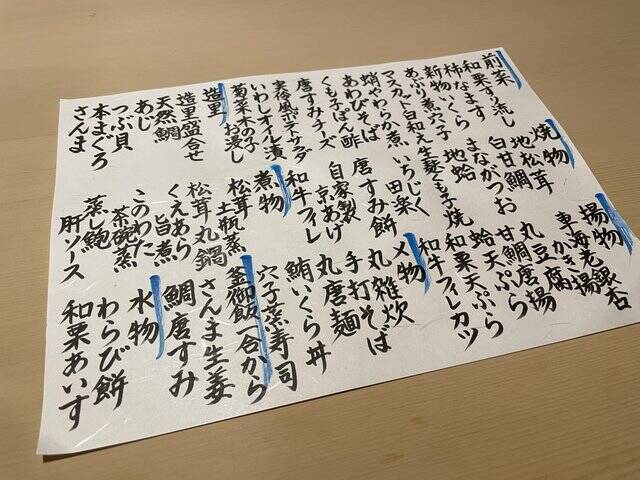 前菜
和栗すり流し
柿なます
新物いくら
あぶり煮穴子
マスカット白和え
蛸やわらか煮
あわびそば
くも子ぽん酢
唐すみチーズ
実伶風ポテトサラダ
いわしオイル漬
菊菜木の子お浸し
造里
造里盛合せ
天然鯛
あじ
つぶ貝
本まぐろ
さんま
焼物
地松茸
白甘鯛
まながつお
地蛤
生麩くも子焼
いちじく田楽
唐すみ餅
自家製京あげ
和牛フィレ
煮物
松茸土瓶蒸
松茸丸鍋
くえあら旨煮
このわた茶碗蒸
蒸し鮑肝ソース
揚物
銀杏
車海老
かき揚
丸豆腐
甘鯛唐揚
蛤天ぷら
和栗天ぷら
和牛フィレカツ
〆物
丸雑炊
手打そば
丸唐麺
鮪いくら丼
穴子蒸寿司
釜御飯一合から
さんま生姜
鯛唐すみ
水物
わらび餅
和栗あいす